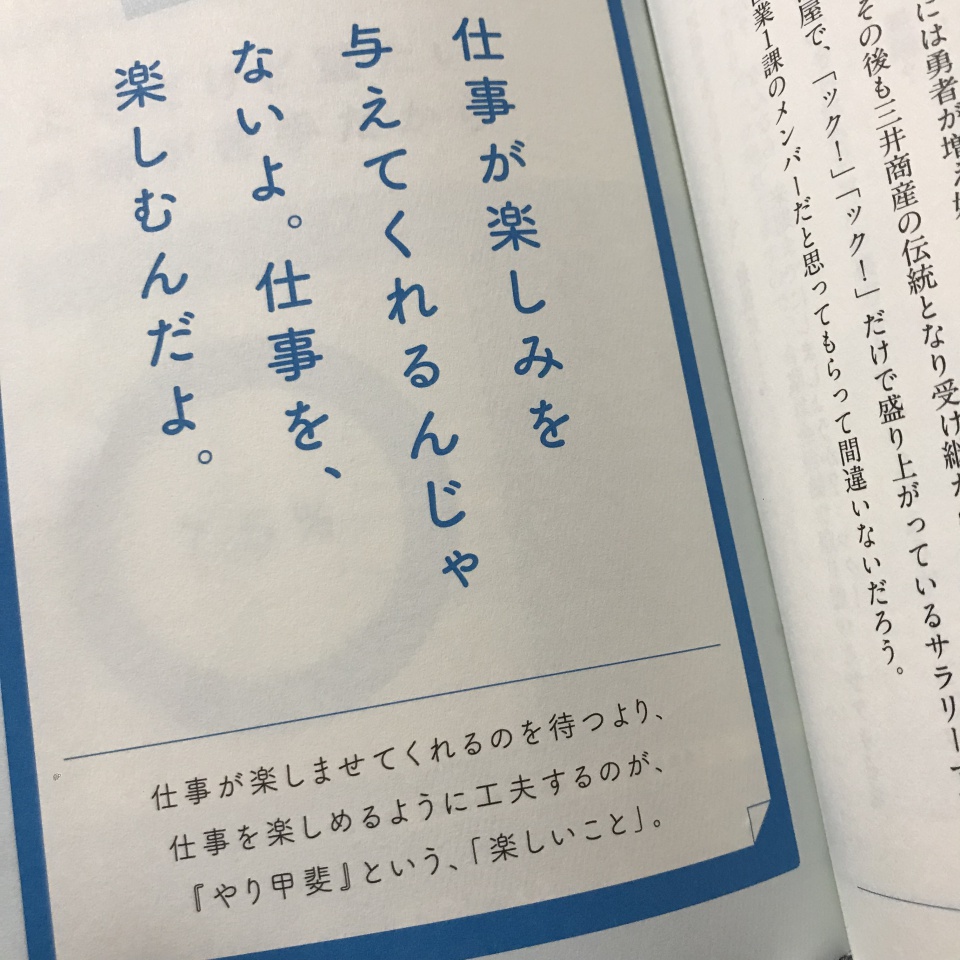 には勇者が増え
その後も三井商産の伝統となり受け継が
屋で、「ック！」「ック！」だけで盛り上がっているサラリーマ
業1課のメンバーだと思ってもらって間違いないだろう。
仕事が楽しみを
与えてくれるんじゃ
ないよ。仕事を、
楽しむんだよ。
仕事が楽しませてくれるのを待つより、
仕事を楽しめるように工夫するのが、
『やり甲斐』という、「楽しいこと」。